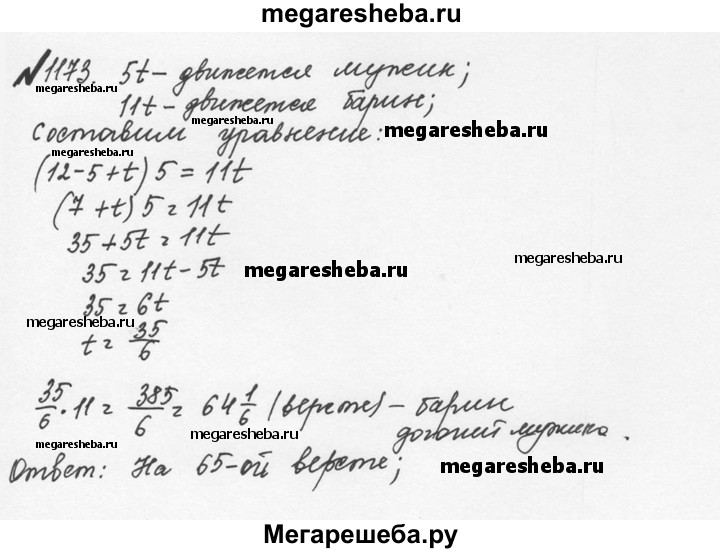 megaresheba.ru
№1173 5t – движется мужик;
megaresheba.ru
11t – движется барин;
Составим уравнение: megaresheba.ru
megaresheba.ru
(12-5+t) 5 = 11t
(7+t) 5 = 11t
35+5t = 11t
35 = 11t-5t megaresheba.ru megaresheba.ru
35 = 6t
megaresheba.ru
t = 35/6
35/6 · 11 = 385/6 = 64 1/6 (версте) – барин
догонит мужика.
megaresheba.ru megaresheba.ru
Ответ: На 65-ой версте; megaresheba.ru
Мегарешеба.ру